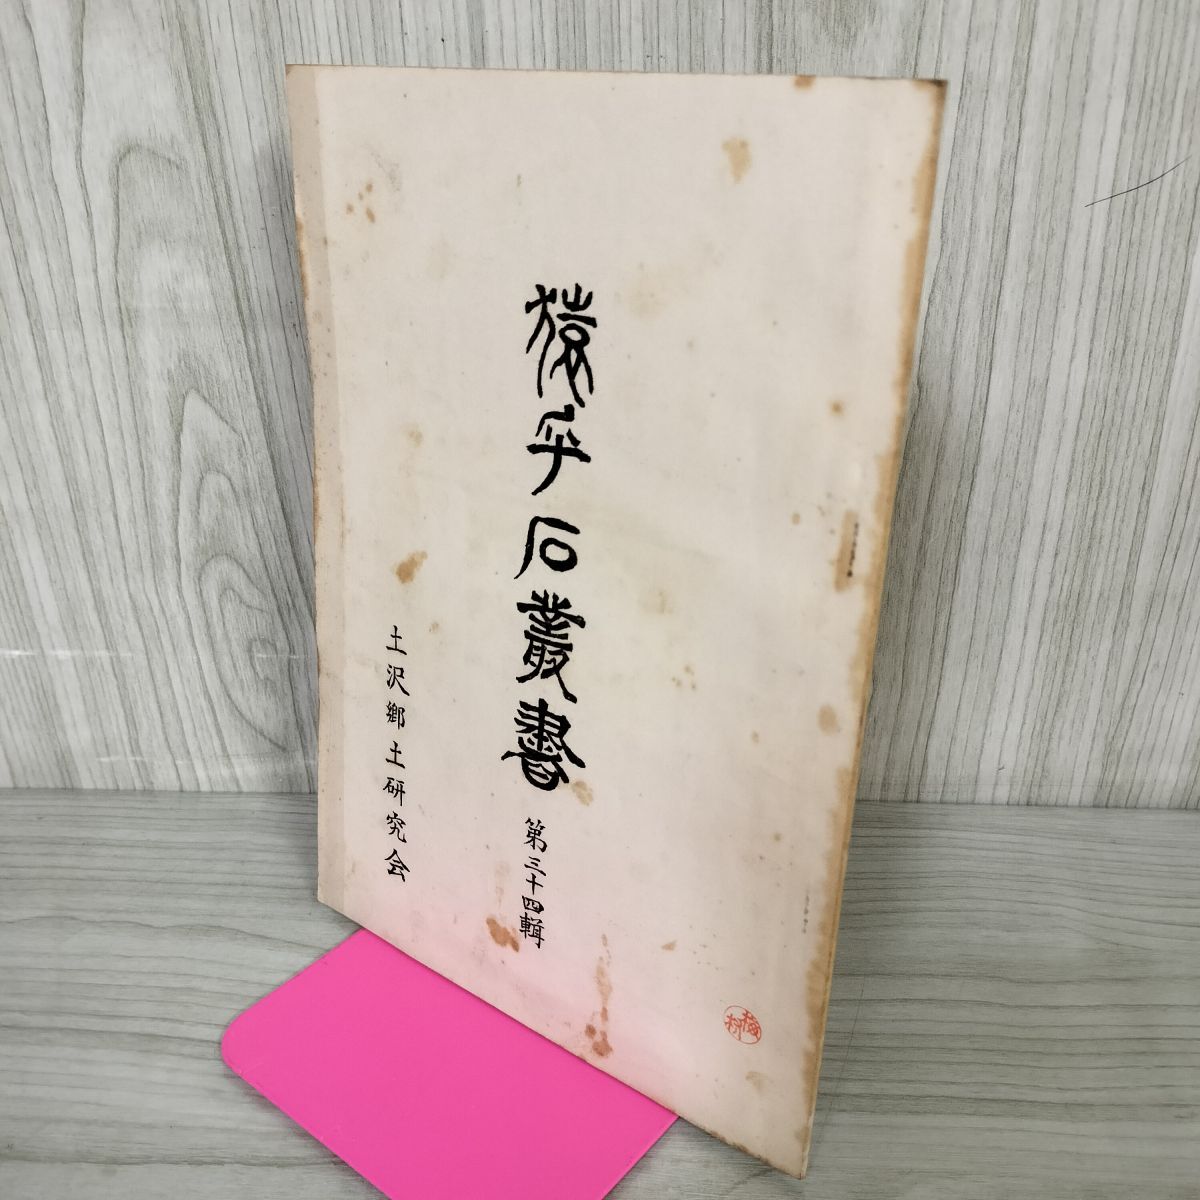 猿乎石叢書
第三十四輯
土沢郷土研究会
梅村